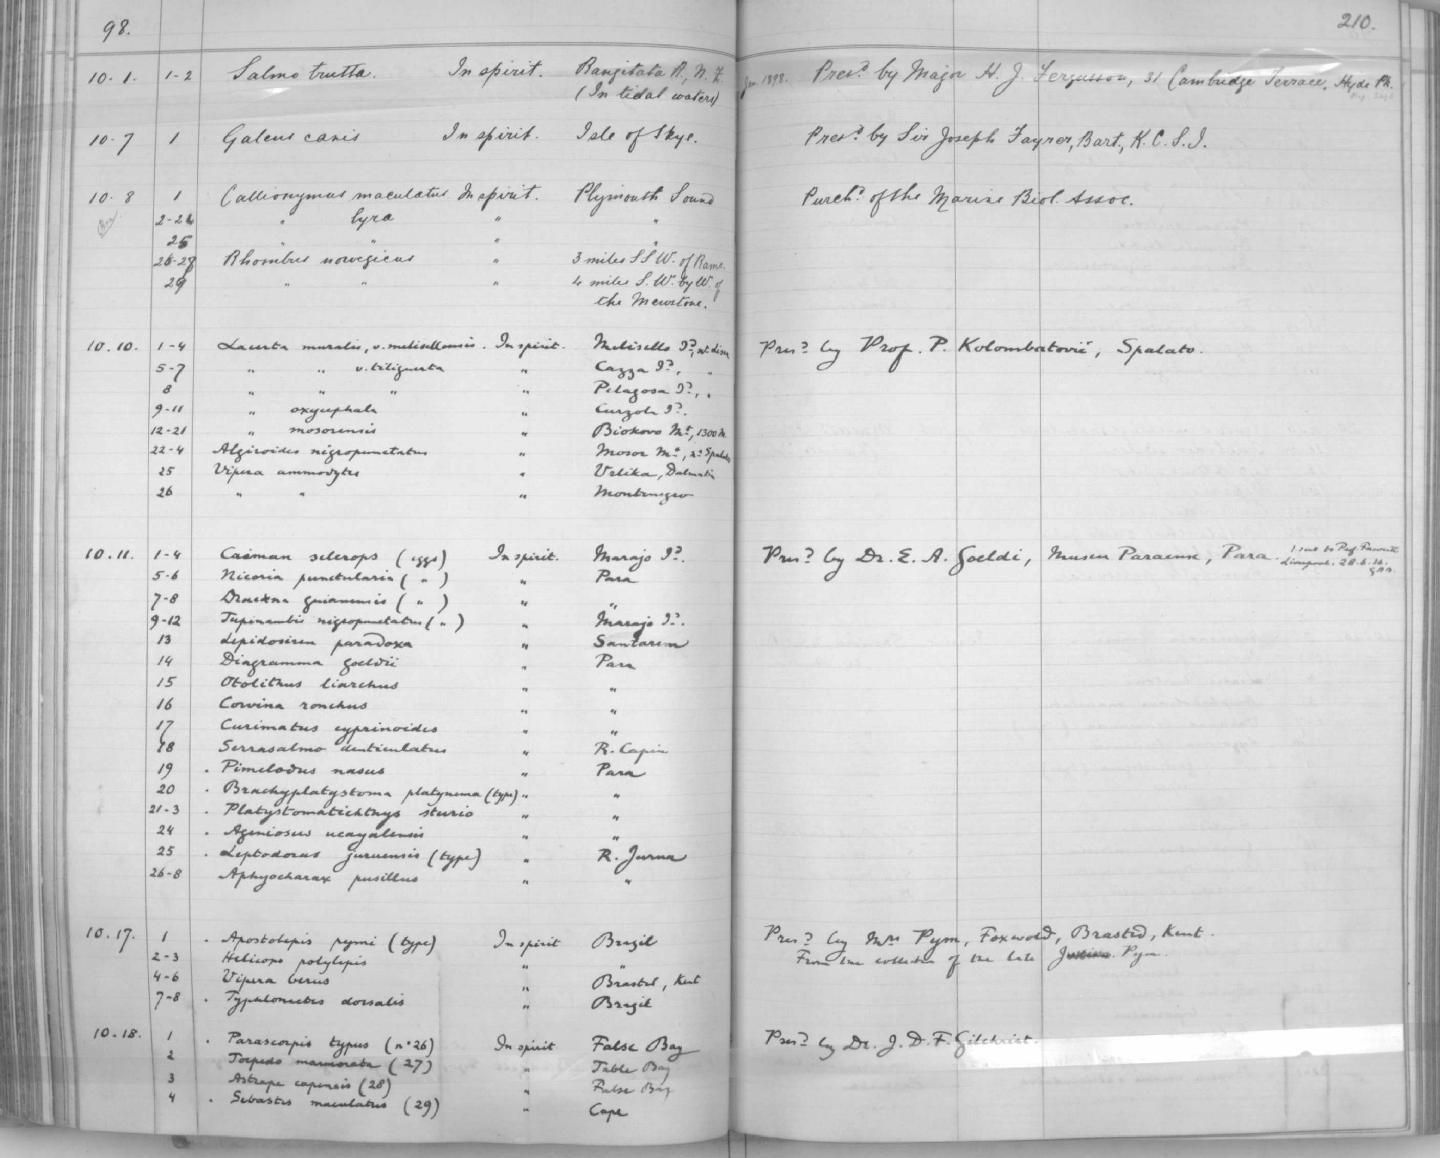 98.
210.
10. 1. 1-2 Salmo trutta. In spirit. Rangitata R., N. Z. Jan. 1898. Pres.d by Major H. J. Fergusson, 31 Cambridge Terrace, Hyde Pk.
(In tidal waters)
10. 7 1 Galeus canis In spirit. Isle of Skye. Pres.d by Sir Joseph Fayrer, Bart., K. C. S. I.
10. 8 1 Callionymus maculatus In spirit. Plymouth Sound Purch.d of the Marine Biol. Assoc.
2-24 " lyra " "
25 " " " "
26-28 Rhombus norvegicus " 3 miles S.S.W. of Rame.
29 " " " 4 miles S.W. by W. of
the Mewstone.
10. 10. 1-4 Lacerta muralis, v. melisellensis. In spirit. Melisello I.d, nr. Lissa Pres.d by Prof. P. Kolombatović, Spalato.
5-7 " " v. tiliguerta " Cazza I.d, "
8 " " " " Pelagosa I.d, "
9-11 " oxycephala " Curzola I.d.
12-21 " mosorensis " Biokovo Mt., 1300 m.
22-4 Algiroides nigropunctatus " Mosor Mn., nr. Spalato
25 Vipera ammodytes " Velika, Dalmatia
26 " " " Montenegro
10. 11. 1-4 Caiman sclerops (eggs) In spirit. Marajo I.d. Pres.d by Dr. E. A. Goeldi, Museu Paraense, Para. 1 sent to Prof. Fawcett
Liverpool. 28.6.16.
5-6 Nicoria punctularia ( " ) " Para
7-8 Dracæna guianensis ( " ) " "
9-12 Tupinambis nigropunctatus ( " ) " Marajo I.d.
13 Lepidosiren paradoxa " Santarem
14 Diagramma goeldii " Para
15 Otolithus liarchus " "
16 Corvina ronchus " "
17 Curimatus cyprinoides " "
18 Serrasalmo denticulatus " R. Capin
19 . Pimelodus nasus " Para
20 . Brachyplatystoma platynema (type) " "
21-3 . Platystomatichthys sturio " "
24 . Ageniosus ucayalensis " "
25 . Leptodoras juruensis (type) " R. Jurua
26-8 Aphyocharax pusillus " "
10. 17. 1 . Apostolepis pymi (type) In spirit Brazil Pres.d by Mrs Pym, Foxwold, Brasted, Kent.
2-3 Helicops polylepis " " From the collection of the late Pym.
4-6 Vipera berus " Brasted, Kent
7-8 . Typhlonectes dorsalis " Brazil
10. 18. 1 . Parascorpis typus (no. 26) In spirit False Bay Pres.d by Dr. J. D. F. Gilchrist.
2 Torpedo marmorata (27) " Table Bay
3 Astrape capensis (28) " False Bay
4 . Sebastes maculatus (29) " Cape